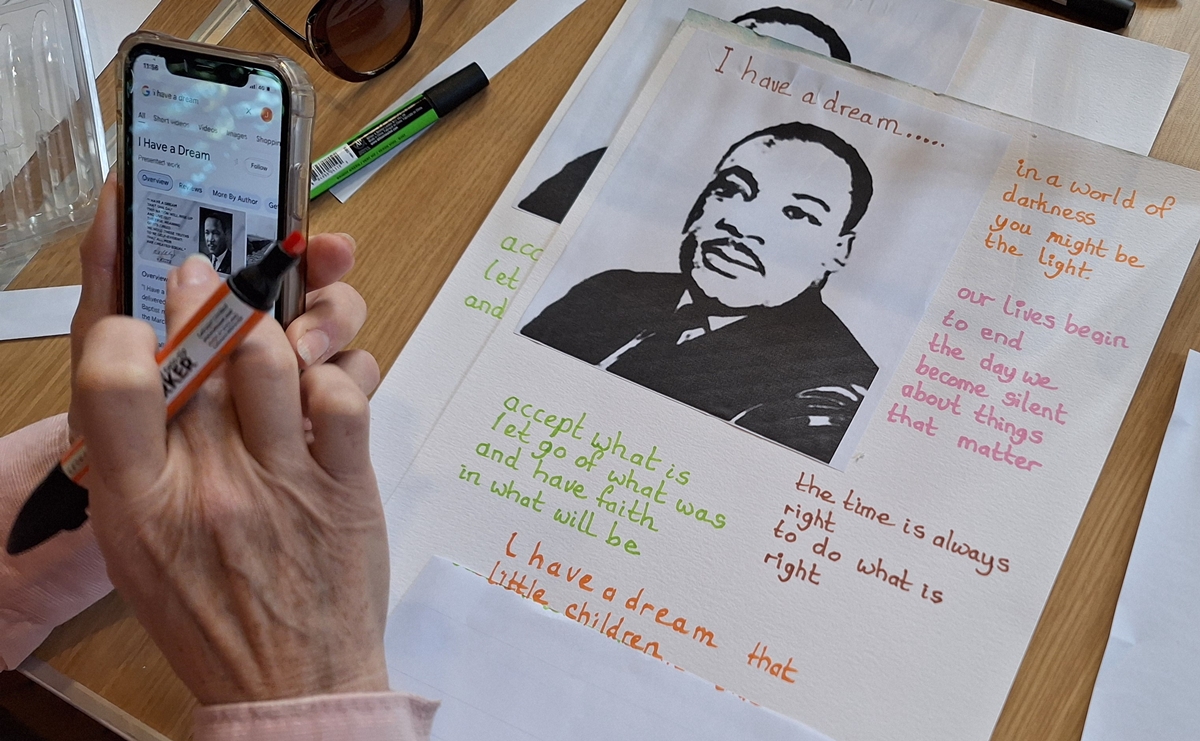 11:56
4G
G i have a dream
All Short videos Videos Images Shopping
I Have a Dream
Presented work
Follow
Overview Reviews More By Author
Overview
"I Have a
delivered
Baptist
the March
I have a dream.....
in a world of
darkness
you might be
the light.
our lives begin
to end
the day we
become silent
about things
that matter
acc
let
and
accept what is
let go of what was
and have faith
in what will be
the time is always
right
to do what is
right
I have a dream that
little children...